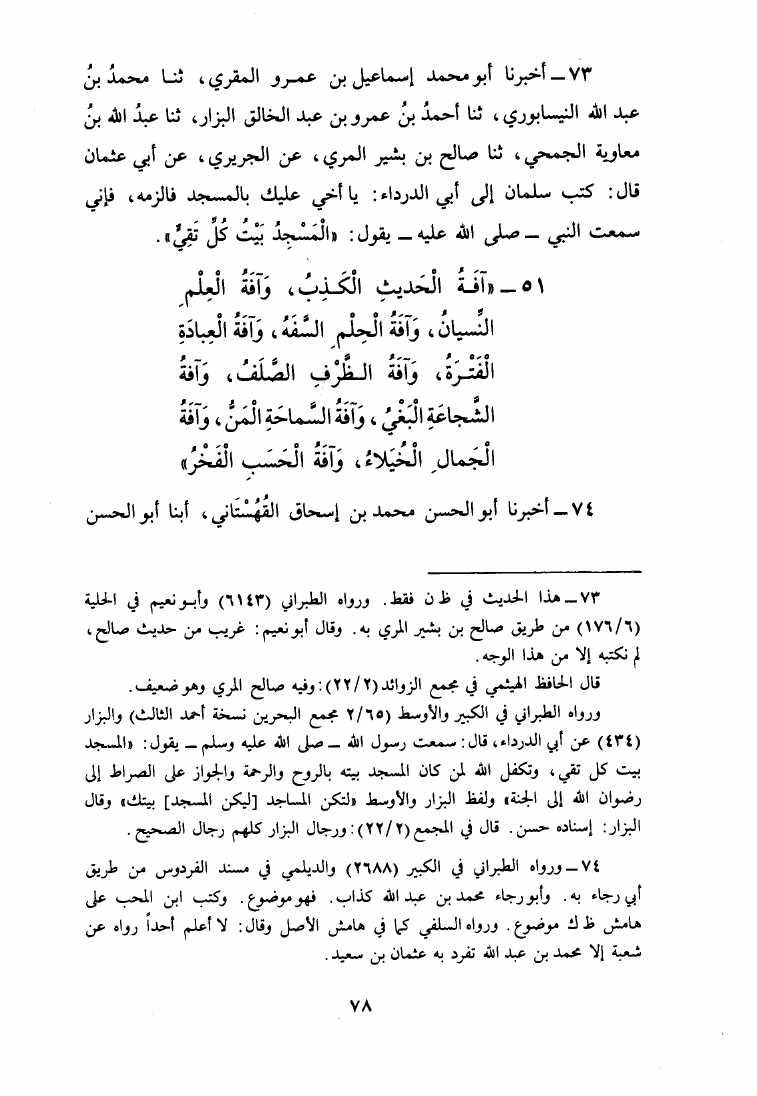 ٧٣ ــ أخبرنا أبو محمد إسماعيل بن عمرو المقري، ثنا محمدُ بنُ
عبد الله النيسابوري، ثنا أحمدُ بنُ عمرو بن عبد الخالق البزار، ثنا عبدُ الله بنُ
معاوية الجمحي، ثنا صالح بن بشير المري، عن الجريري، عن أبي عثمان
قال: كتب سلمان إلى أبي الدرداء: يا أخي عليك بالمسجد فالزمه، فإني
سمعت النبي ــ صلى الله عليه ــ يقول: «الْمَسْجِدُ بَيْتُ كُلِّ تَقِيٍّ».
٥١ ــ «آفَةُ الْحَديثِ الْكَذِبُ، وَآفَةُ الْعِلْمِ
النِّسيانُ، وَآفَةُ الْحِلْمِ السَّفَهُ، وَآفَةُ الْعِبادَةِ
الْفَتْرَةُ، وَآفَةُ الظَّرْفِ الصَّلَفُ، وَآفَةُ
الشَّجاعَةِ الْبَغْيُ، وَآفَةُ السَّماحَةِ الْمَنُّ، وَآفَةُ
الْجَمالِ الْخُيَلاءُ، وَآفَةُ الْحَسَبِ الْفَخْرُ»
٧٤ ــ أخبرنا أبو الحسن محمد بن إسحاق القُهُسْتَاني، أبنا أبو الحسن
٧٣ ــ هذا الحديث في ظ ن فقط. ورواه الطبراني (٦١٤٣) وأبو نعيم في الحلية
(٦/١٧٦) من طريق صالح بن بشير المري به. وقال أبو نعيم: غريب من حديث صالح،
لم نكتبه إلا من هذا الوجه.
قال الحافظ الهيثمي في مجمع الزوائد (٢/٢٢): وفيه صالح المري وهو ضعيف.
ورواه الطبراني في الكبير والأوسط (٢/٦٥ مجمع البحرين نسخة أحمد الثالث) والبزار
(٤٣٤) عن أبي الدرداء، قال: سمعت رسول الله ــ صلى الله عليه وسلم ــ يقول: «المسجد
بيت كل تقي، وتكفل الله لمن كان المسجد بيته بالروح والرحمة والجواز على الصراط إلى
رضوان الله إلى الجنة» ولفظ البزار والأوسط «لتكن المساجد [ليكن المسجد] بيتك» وقال
البزار: إسناده حسن. قال في المجمع (٢/٢٢): ورجال البزار كلهم رجال الصحيح.
٧٤ ــ ورواه الطبراني في الكبير (٢٦٨٨) والديلمي في مسند الفردوس من طريق
أبي رجاء به. وأبو رجاء محمد بن عبد الله كذاب. فهو موضوع. وكتب ابن المحب على
هامش ظ ك موضوع. ورواه السلفي كما في هامش الأصل وقال: لا أعلم أحداً رواه عن
شعبة إلا محمد بن عبد الله تفرد به عثمان بن سعيد.
٧٨